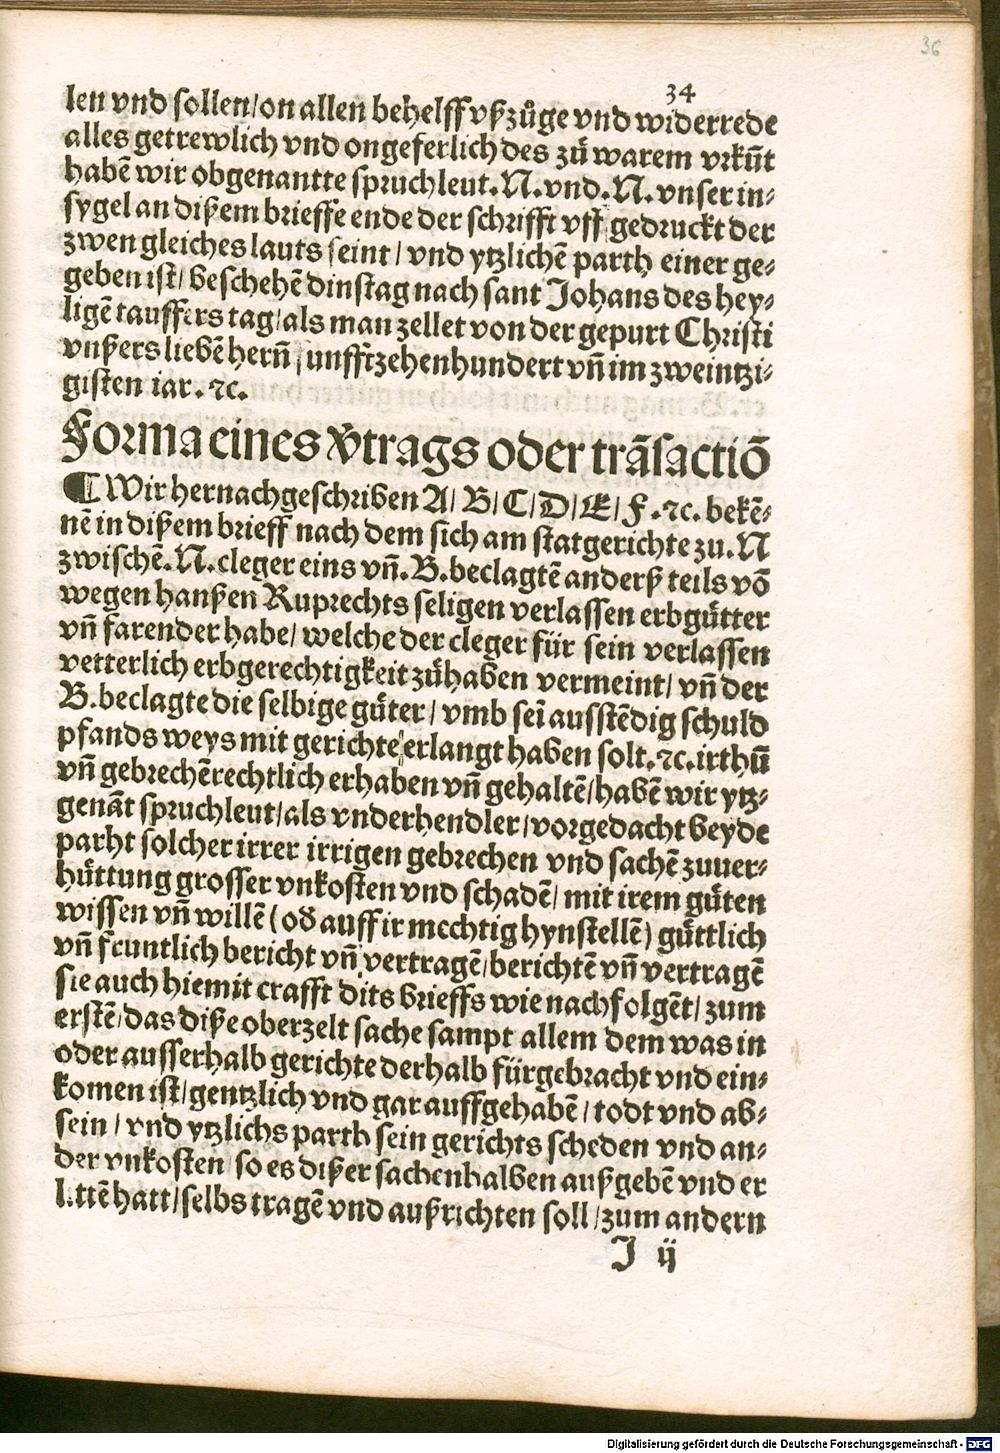 36
34
len vnd sollen/on allen behelff vßzůge vnd widerrede
alles getrewlich vnd ongeferlich des zů warem vrkūt
habē wir obgenantte spruchleut.N.vnd.N.vnser in⸗
sygel an dißem brieffe ende der schrifft vff gedruckt der
zwen gleiches lauts seint/ vnd ytzlichē parth einer ge⸗
geben ist/ beschehē dinstag nach sant Johans des hey⸗
ligē tauffers tag/als man zellet von der gepurt Christi
vnßers liebē herñ funfftzehenhundert vñ im zweintzi⸗
gisten iar.⁊c.
Forma eines v̄trags oder trāsactiō
¶ Wir hernachgeschriben A/ B/ C/ D/ E/ F.⁊c. bekē⸗
nē in dißem brieff nach dem sich am statgerichte zu.N
zwischē.N.cleger eins vñ.B.beclagtē anderß teils vō
wegen hanßen Ruprechts seligen verlassen erbgůtter
vñ farender habe/ welche der cleger für sein verlassen
vetterlich erbgerechtigkeit zůhaben vermeint/ vñ der
B.beclagte die selbige gůter/ vmb sei ausstēdig schuld
pfands weys mit gerichte erlangt haben solt.⁊c.irthū
vñ gebrechē rechtlich erhaben vñ gehaltē/habē wir ytz⸗
genāt spruchleut/als vnderhendler/vorgedacht beyde
parht solcher irrer irrigen gebrechen vnd sachē zuuer⸗
hüttung grosser vnkosten vnd schadē/ mit irem gůten
wissen vñ willē (od auff ir mechtig hynstellē) gůttlich
vñ fruntlich bericht vñ vertragē/berichtē vñ vertragē
sie auch hiemit crafft dits brieffs wie nachfolgēt/ zum
erstē/das diße oberzelt sache sampt allem dem was in
oder ausserhalb gerichte derhalb fürgebracht vnd ein⸗
komen ist/gentzlich vnd gar auffgehabē/ todt vnd ab⸗
sein/ vnd ytzlichs parth sein gerichts scheden vnd an⸗
der vnkosten/ so es dißer sachenhalben außgebē vnd er
littē hatt/selbs tragē vnd außrichten soll/zum andern
J ij
Digitalisierung gefördert durch die Deutsche Forschungsgemeinschaft - DFG